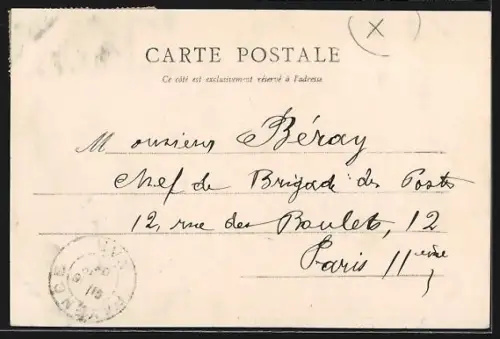 CARTE POSTALE
Ce côté est exclusivement réservé à l'adresse
Monsieur Béray
chef de Brigade des Postes
12, rue des Boulets, 12
Paris 11eme